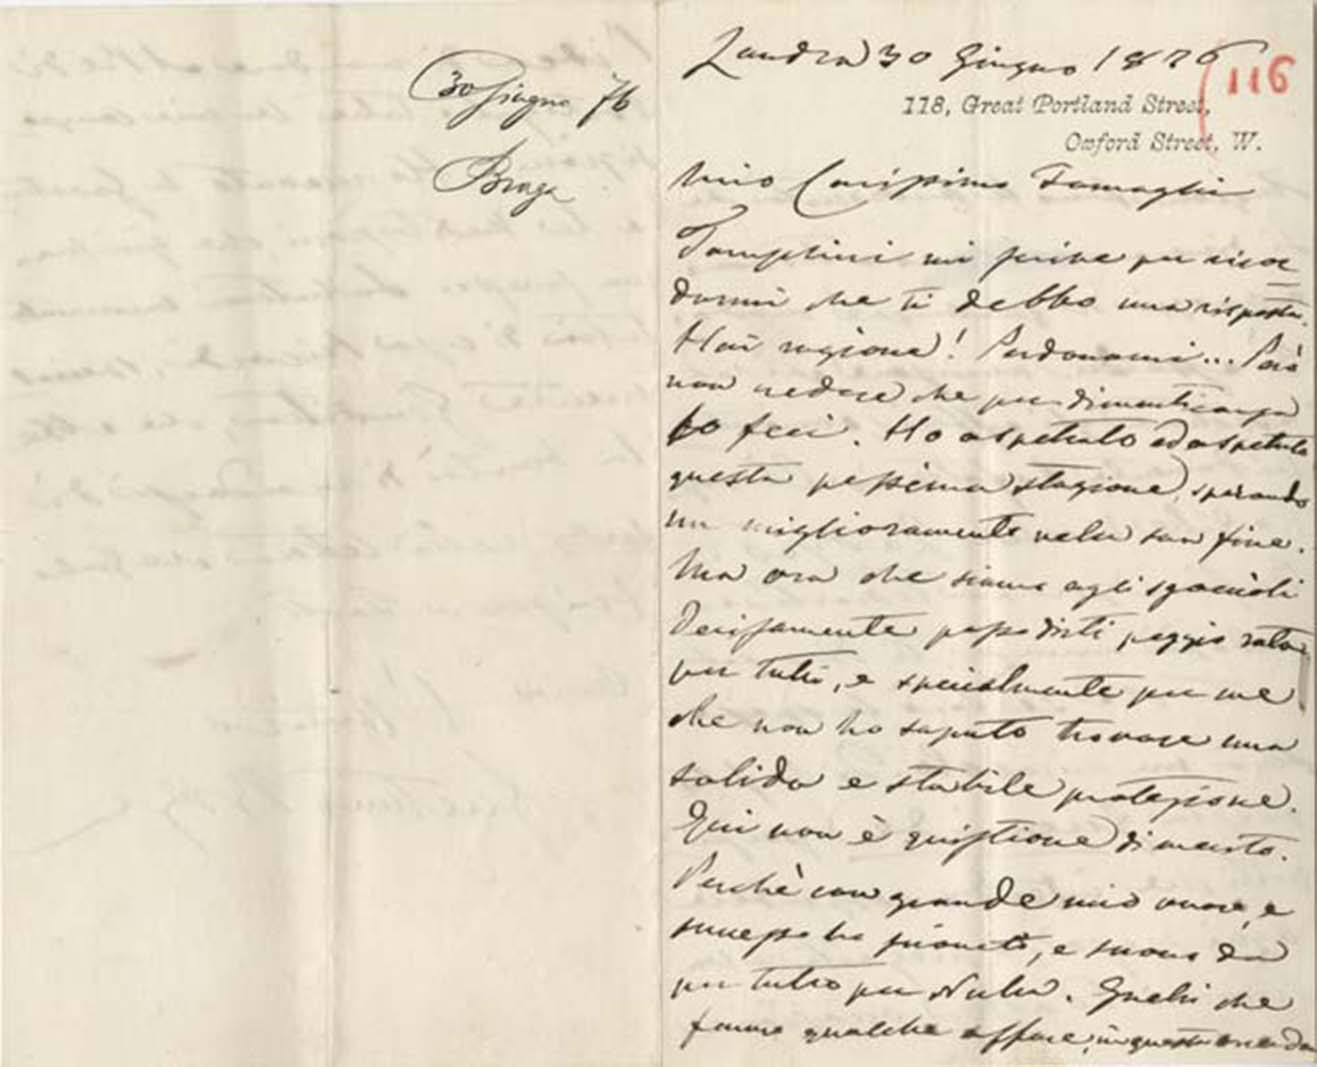 30 Giugno 76
Braga
Londra 30 Giugno 1876
116
118, Great Portland Street,
Oxford Street, W.
Mio Carissimo Tornaghi
mi scrive per ricor
darmi che ti debbo una risposta.
Hai ragione! Perdonami... Però
non credere che per dimenticanza
lo feci. Ho aspettato ed aspettato
questa pessima stagione, sperando
un miglioramento nella sua fine.
Ma ora che siamo agli sgoccioli
Decisamente posso dirti
per tutti, e specialmente per me
che non ho saputo trovare una
solida e stabile protezione.
Qui non è quistione di merito.
Perchè con grande mio onore, e
successo ho suonato, e suono da
per tutto per Nulla. Quelli che
fanno qualche affare, in questa